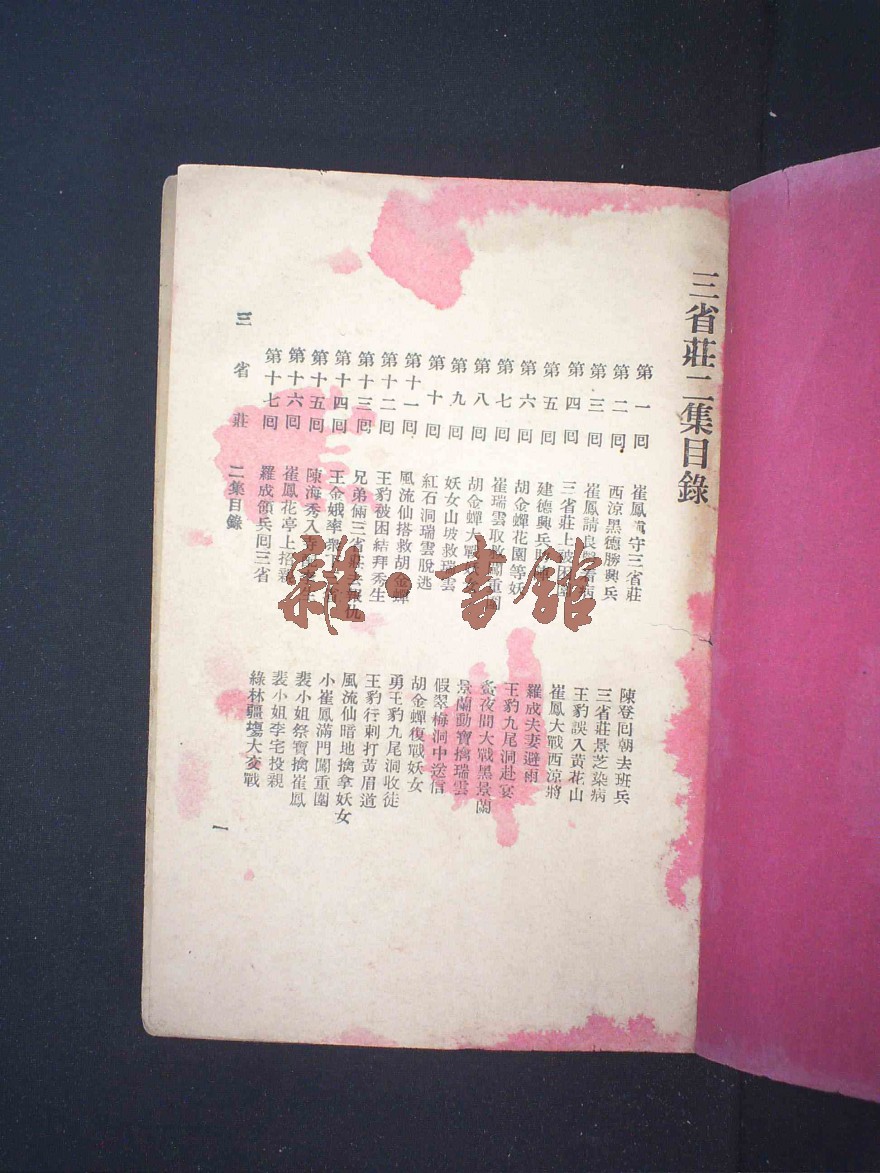 三省莊二集目錄
第一回 崔鳳 守三省莊 陳登回朝去班兵
第二回 西涼黑德勝興兵 三省莊景芝染病
第三回 崔鳳請良醫看病 王豹誤入黃花山
第四回 三省莊上被 崔鳳大戰西涼將
第五回 建德興兵 羅成夫妻避雨
第六回 胡金蟬花園等妖 王豹九尾洞赴宴
第七回 崔瑞雲取 重圍 夜間大戰黑景蘭
第八回 胡金蟬大戰 景蘭動寶擒瑞雲
第九回 妖女山坡救瑞雲 假翠梅洞中送信
第十回 紅石洞瑞雲脫逃 胡金蟬復戰妖女
第十一回 風流仙搭救胡金蟬 勇王豹九尾洞收徒
第十二回 王豹被困結拜秀生 王豹行刺打黃眉道
第十三回 兄弟倆三省莊去報仇 風流仙暗地擒拿妖女
第十四回 王金娥率眾下 小崔鳳滿門闖重圍
第十五回 陳海秀入 裴小姐祭寶擒崔鳳
第十六回 崔鳳花亭上招親 裴小姐李宅投親
第十七回 羅成領兵回三省 綠林疆場大交戰
三省莊 二集目錄 一
雜·書館